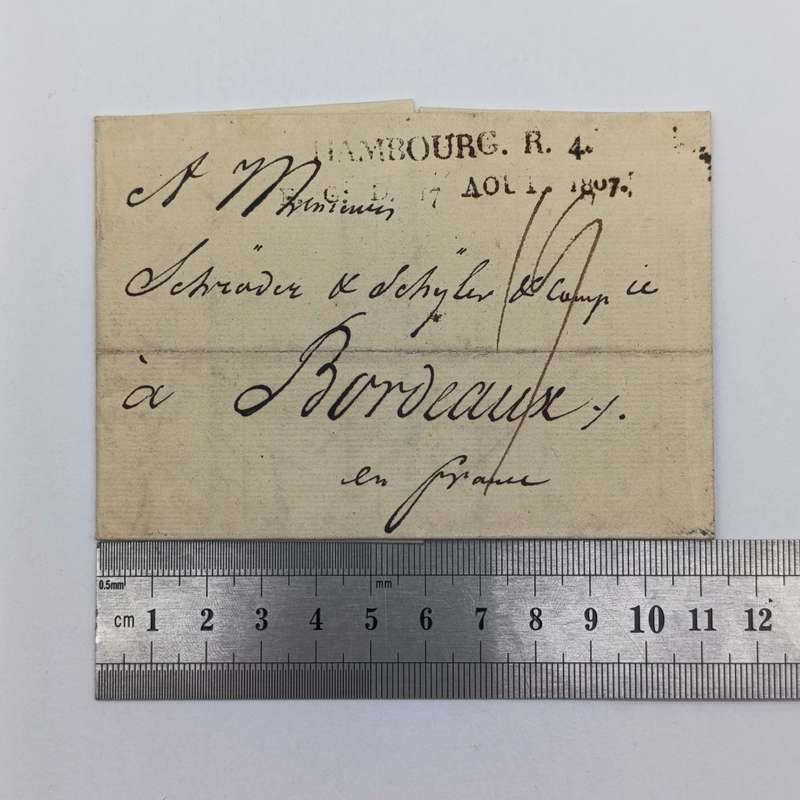 HAMBOURG. R. 4.
17 AOUT. 1807.
A Messieurs
Schröder & Schÿler & Comp ie
à Bordeaux
en france
0.5mm
mm
cm 1 2 3 4 5 6 7 8 9 10 11 12